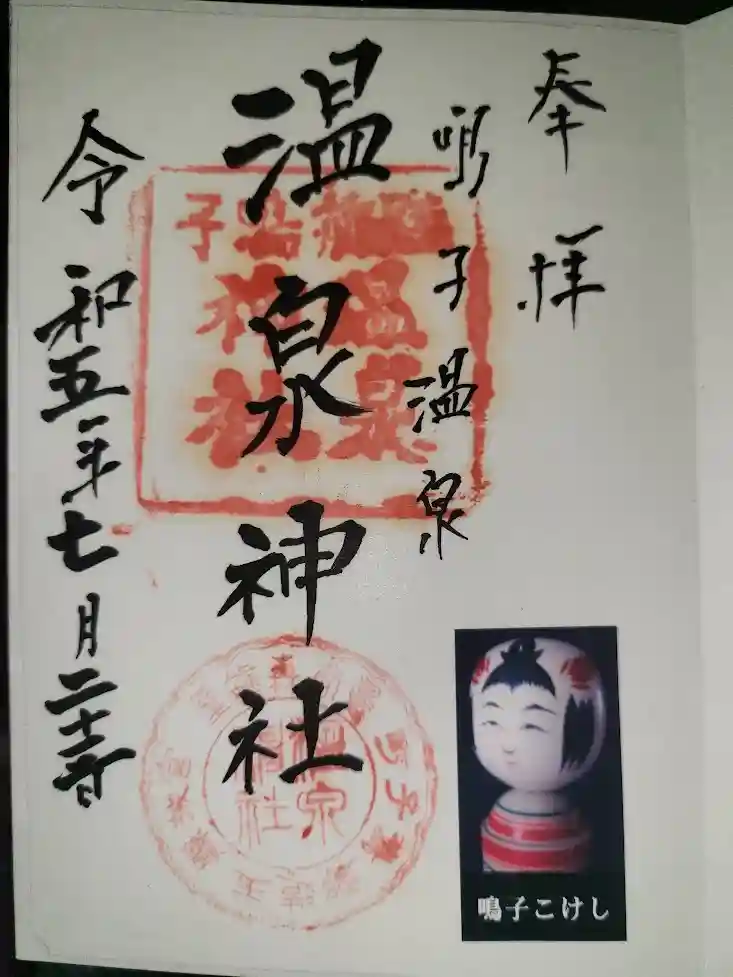 奉拝
鳴子温泉
温泉神社
陸前鳴子
温泉
神社
温泉
神社
令和五年七月二十
鳴子こけし